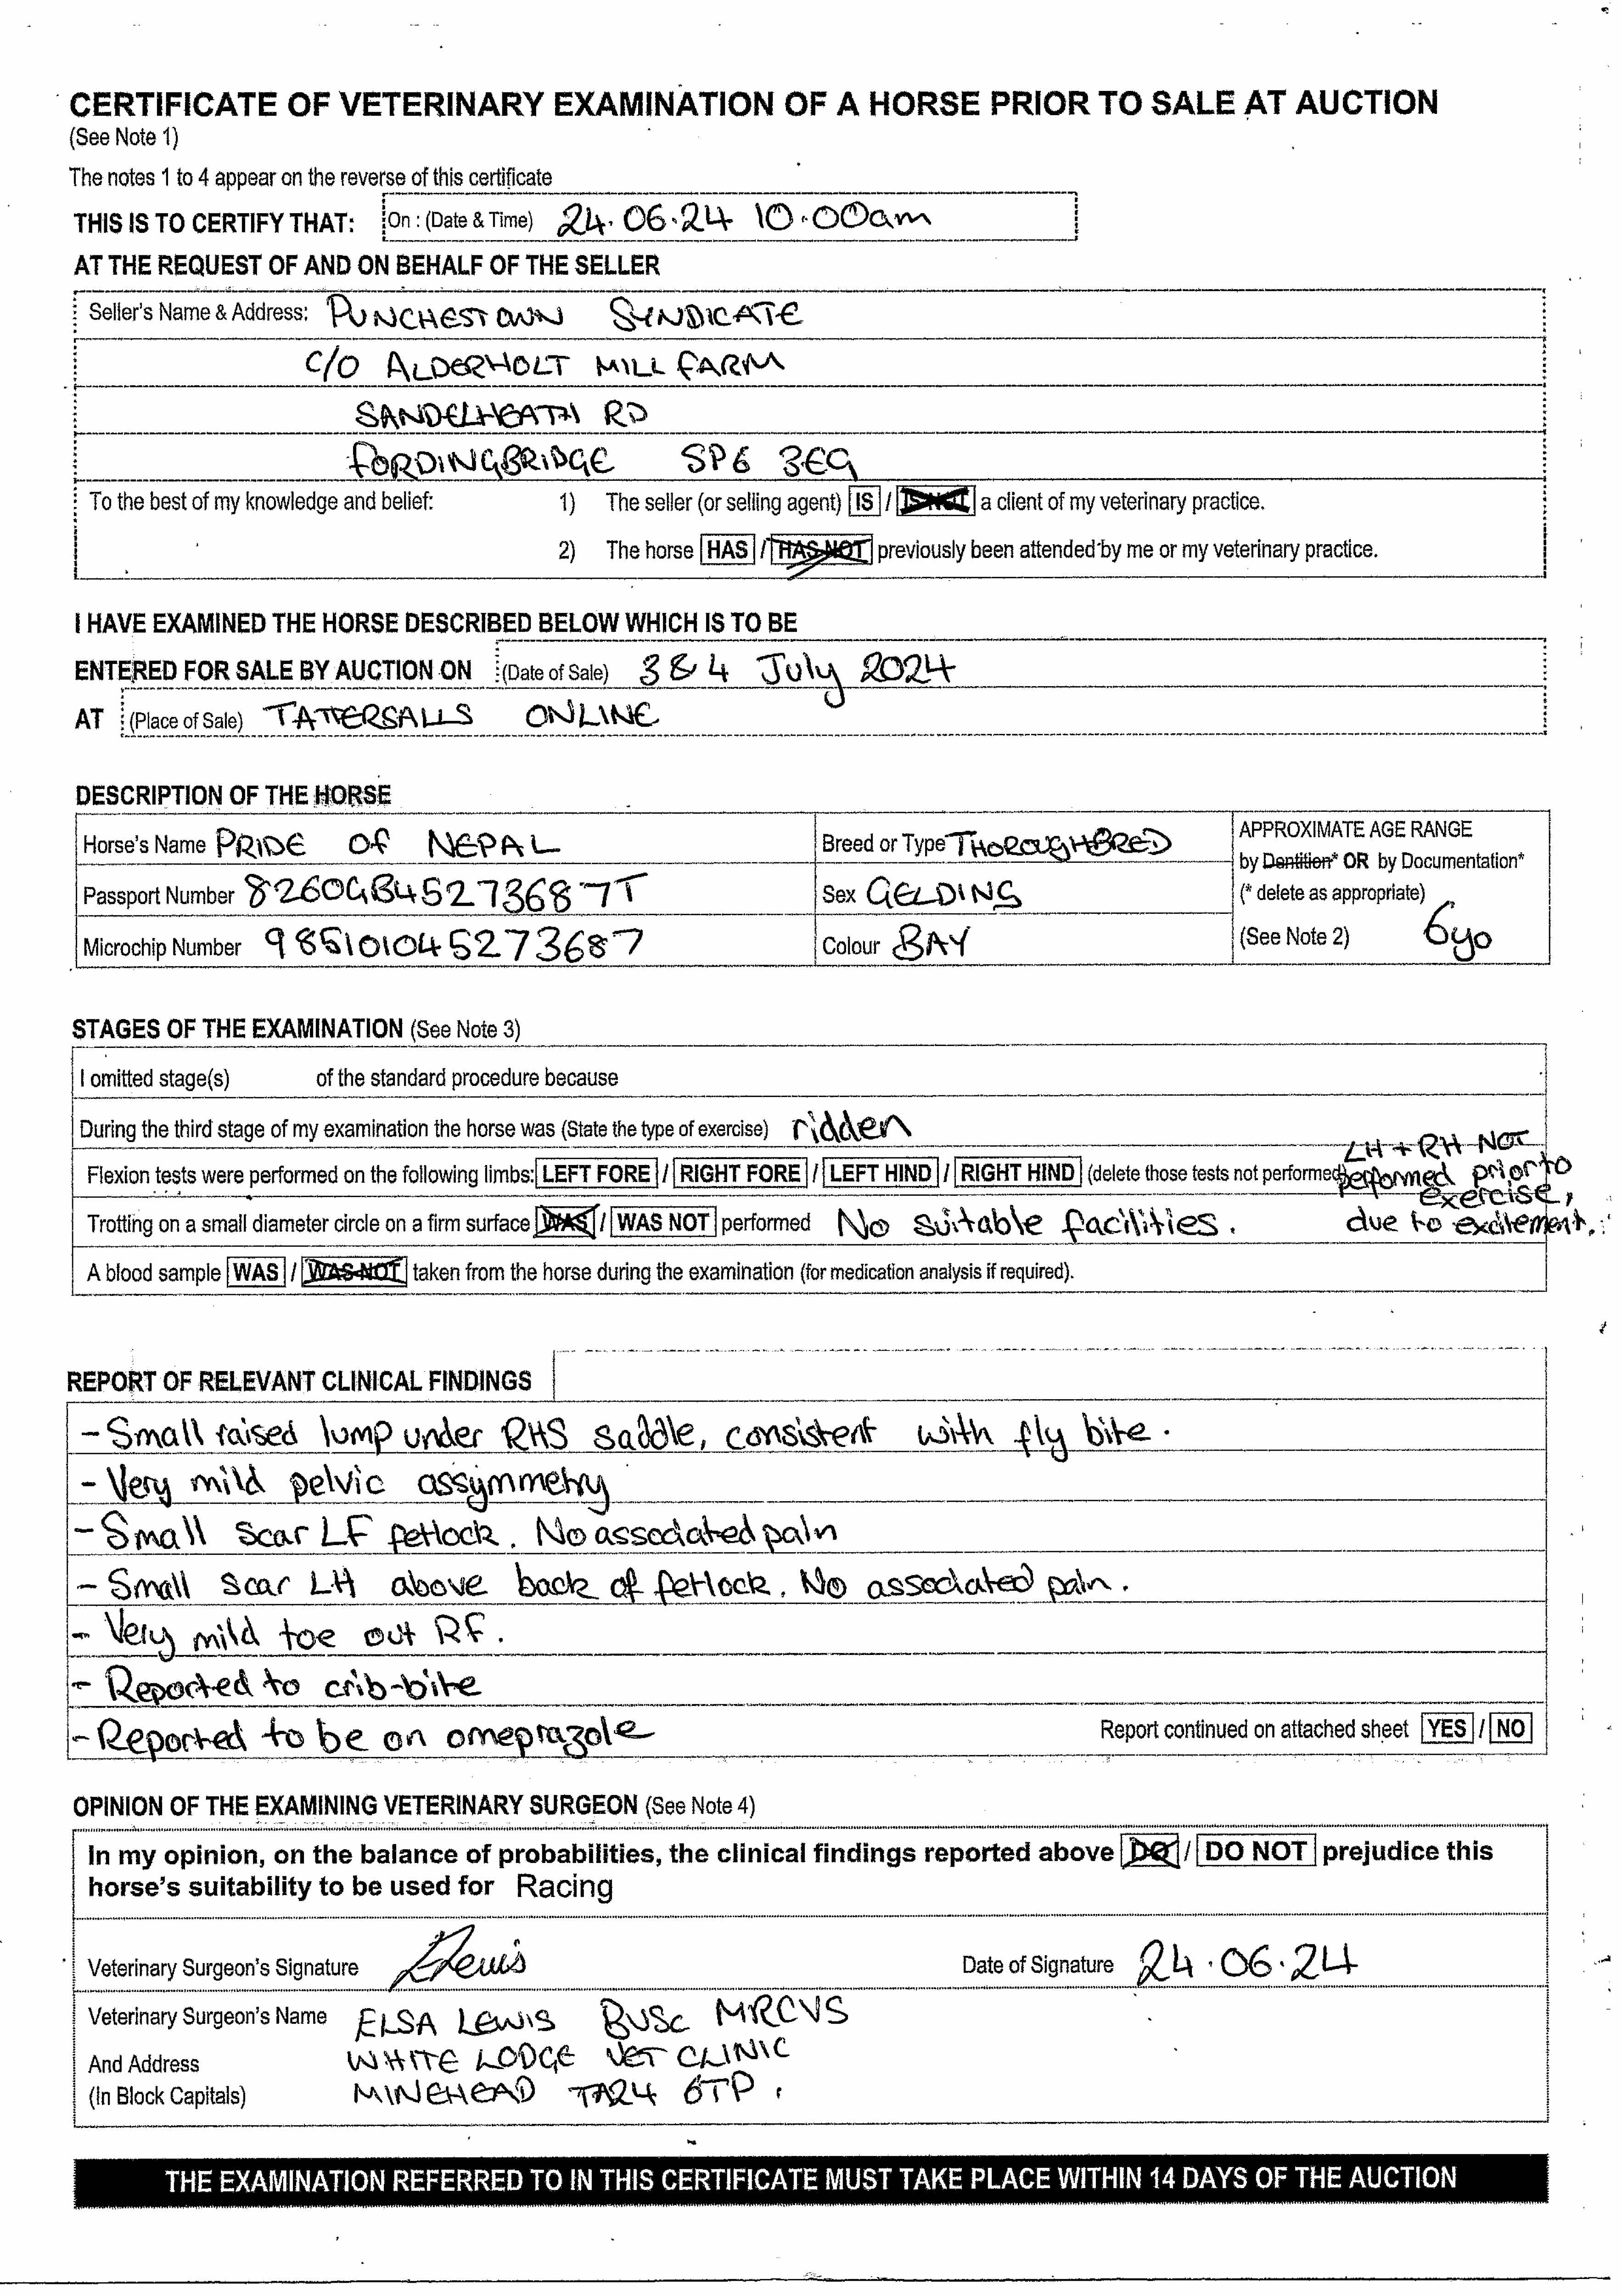 CERTIFICATE OF VETERINARY EXAMINATION OF A HORSE PRIOR TO SALE AT AUCTION
(See Note 1)
The notes 1 to 4 appear on the reverse of this certificate
THIS IS TO CERTIFY THAT: On : (Date & Time) 24.06.24 10.00am
AT THE REQUEST OF AND ON BEHALF OF THE SELLER
Seller's Name & Address: PUNCHESTOWN SYNDICATE
C/O ALDERHOLT MILL FARM
SANDELHEATH RD
FORDINGBRIDGE SP6 3EG
To the best of my knowledge and belief: 1) The seller (or selling agent) IS / IS NOT a client of my veterinary practice.
2) The horse HAS / HAS NOT previously been attended by me or my veterinary practice.
I HAVE EXAMINED THE HORSE DESCRIBED BELOW WHICH IS TO BE
ENTERED FOR SALE BY AUCTION ON (Date of Sale) 3 & 4 July 2024
AT (Place of Sale) TATTERSALLS ONLINE
DESCRIPTION OF THE HORSE
Horse's Name PRIDE OF NEPAL Breed or Type THOROUGHBRED APPROXIMATE AGE RANGE
by Dentition* OR by Documentation*
Passport Number 826OGB45273687T Sex GELDING (* delete as appropriate)
Microchip Number 985101045273687 Colour BAY (See Note 2) 6yo
STAGES OF THE EXAMINATION (See Note 3)
I omitted stage(s) of the standard procedure because
During the third stage of my examination the horse was (State the type of exercise) ridden
Flexion tests were performed on the following limbs: LEFT FORE / RIGHT FORE / LEFT HIND / RIGHT HIND (delete those tests not performed)
LH + RH NOT
performed prior to
exercise,
due to excitement.
Trotting on a small diameter circle on a firm surface WAS / WAS NOT performed No suitable facilities.
A blood sample WAS / WAS NOT taken from the horse during the examination (for medication analysis if required).
REPORT OF RELEVANT CLINICAL FINDINGS
- Small raised lump under RHS saddle, consistent with fly bite.
- Very mild pelvic assymmetry
- Small scar LF fetlock. No associated pain
- Small scar LH above back of fetlock. No associated pain.
- Very mild toe out RF.
- Reported to crib-bite
- Reported to be on omeprazole Report continued on attached sheet YES / NO
OPINION OF THE EXAMINING VETERINARY SURGEON (See Note 4)
In my opinion, on the balance of probabilities, the clinical findings reported above DO / DO NOT prejudice this
horse's suitability to be used for Racing
Veterinary Surgeon's Signature ELewis Date of Signature 24.06.24
Veterinary Surgeon's Name ELSA LEWIS BVSc MRCVS
And Address WHITE LODGE VET CLINIC
(In Block Capitals) MINEHEAD TA24 6TP.
THE EXAMINATION REFERRED TO IN THIS CERTIFICATE MUST TAKE PLACE WITHIN 14 DAYS OF THE AUCTION